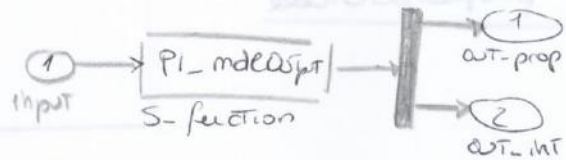 1
input
PI_mdlOutput
S-function
1
out-prop
2
out-int